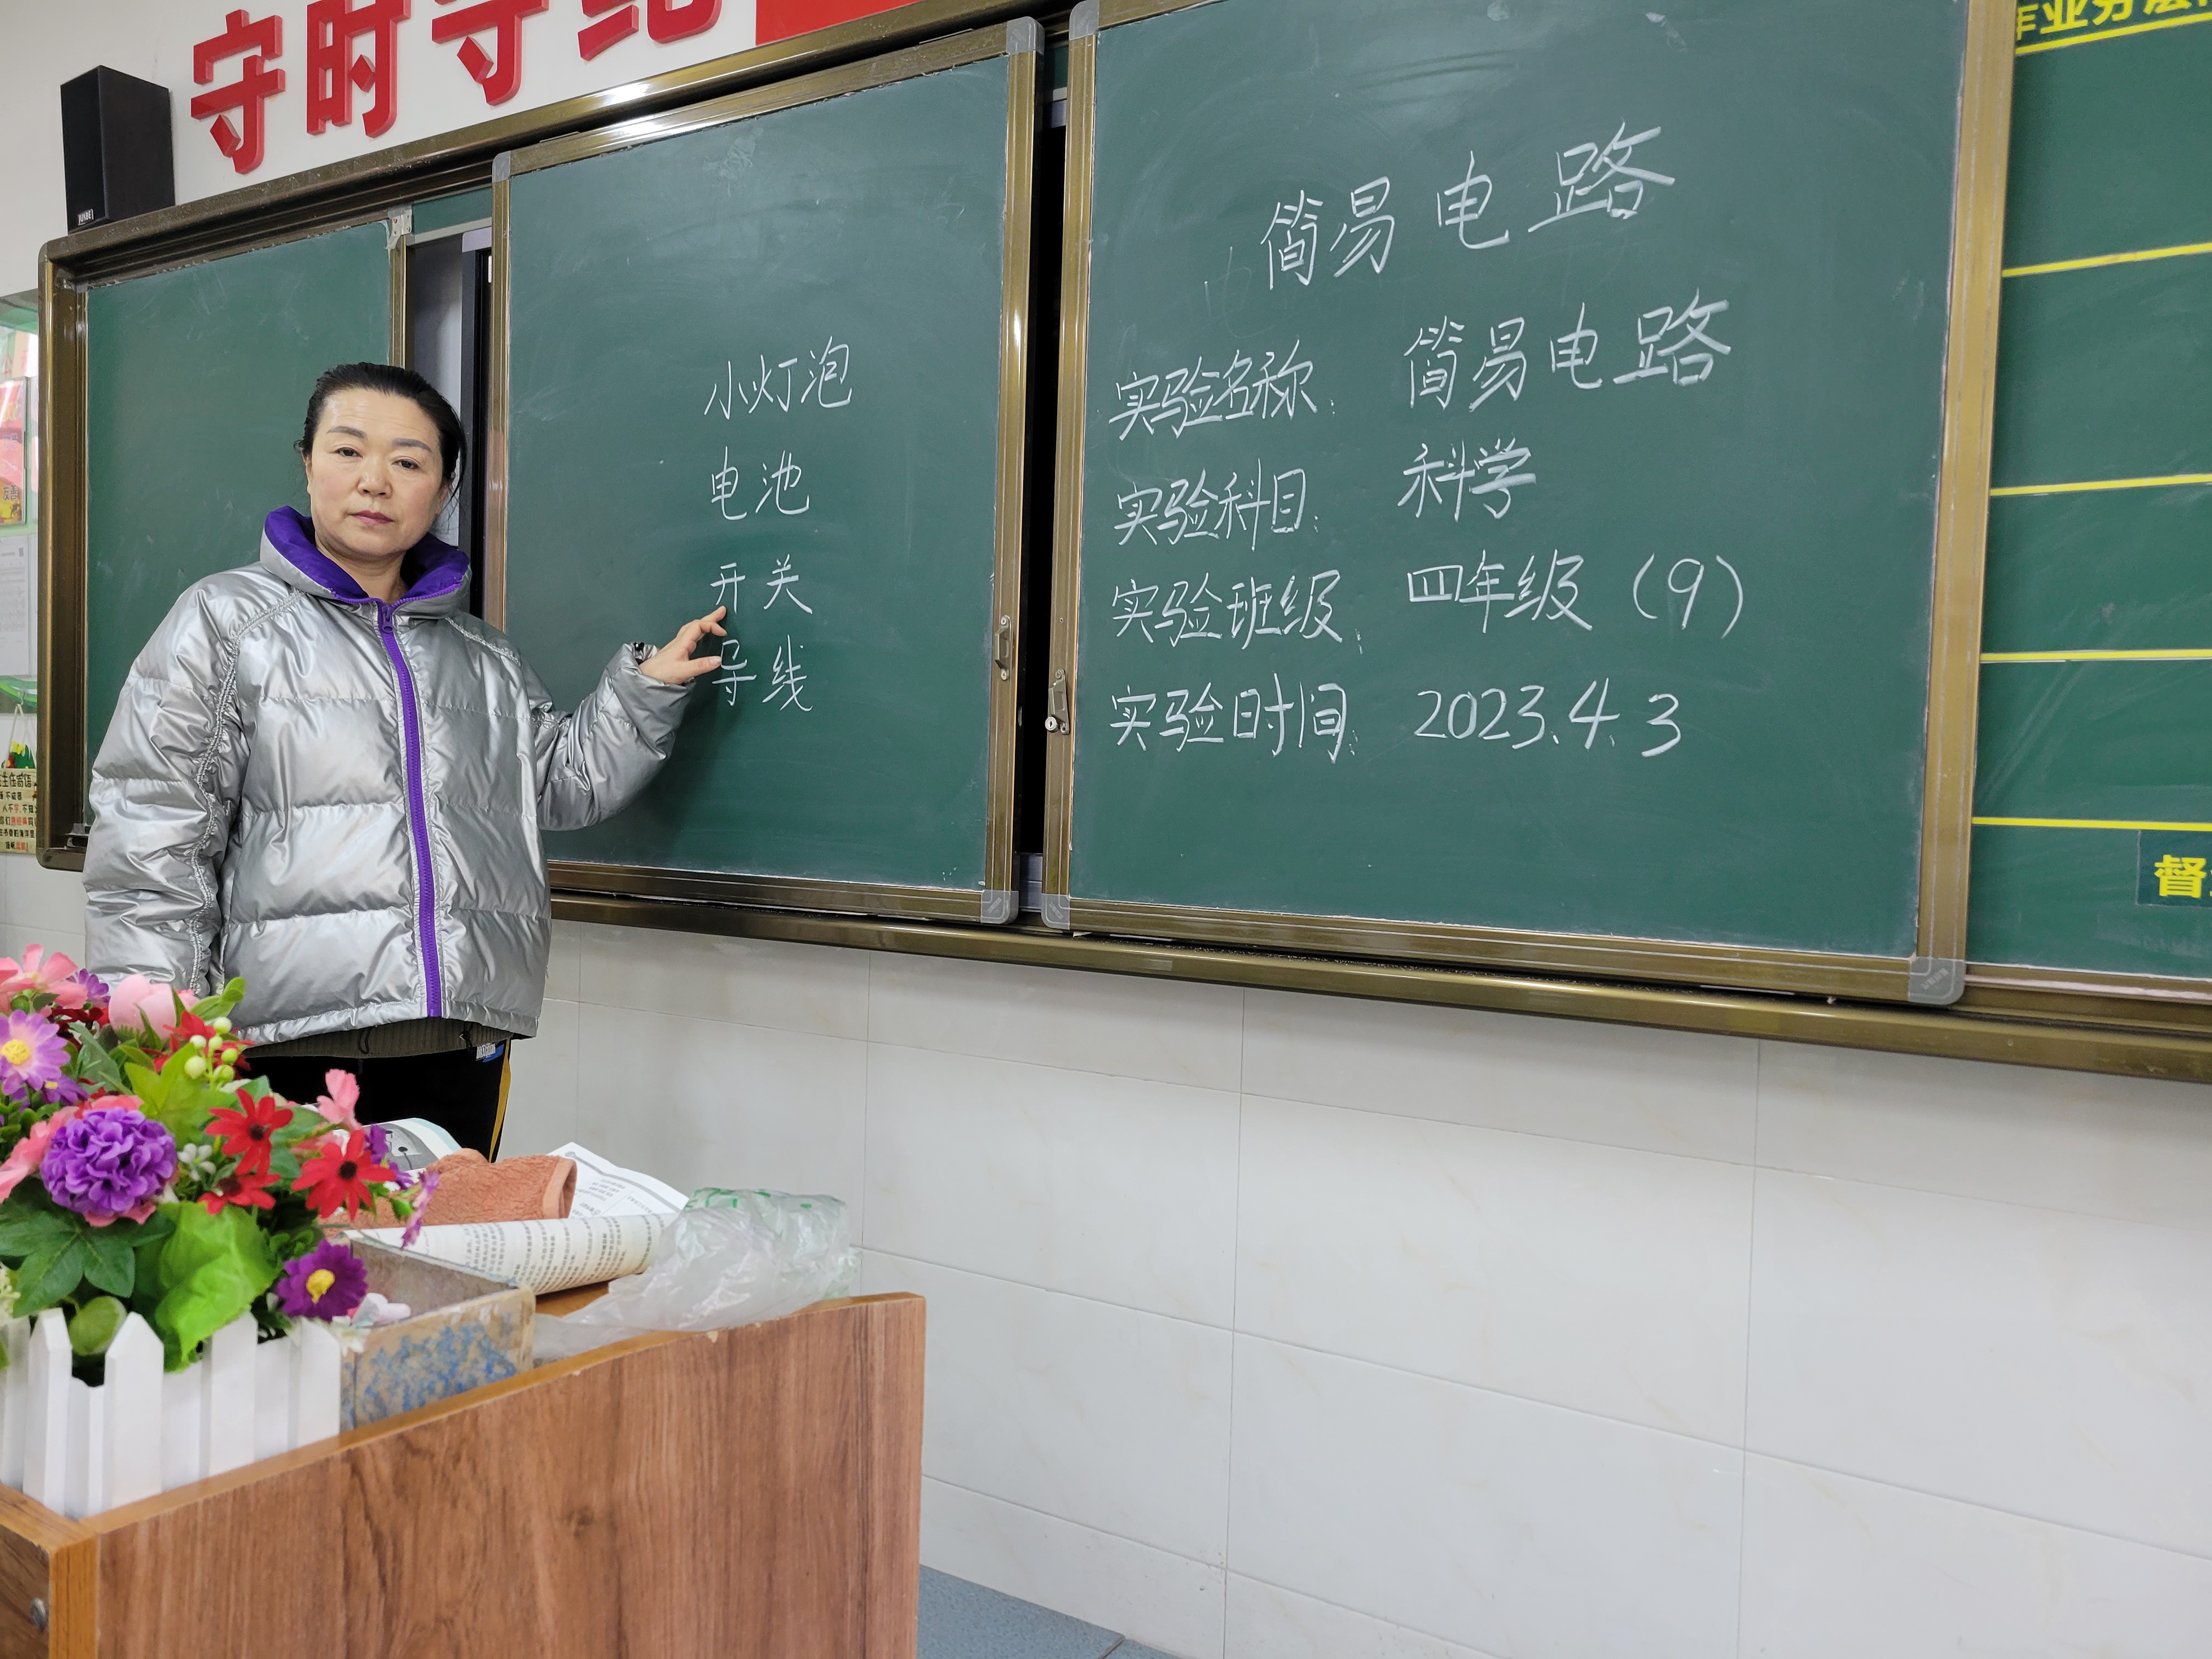 守时守纪
小灯泡
电池
开关
导线
简易电路
实验名称: 简易电路
实验科目: 科学
实验班级: 四年级(9)
实验时间: 2023.4.3
业分层
督